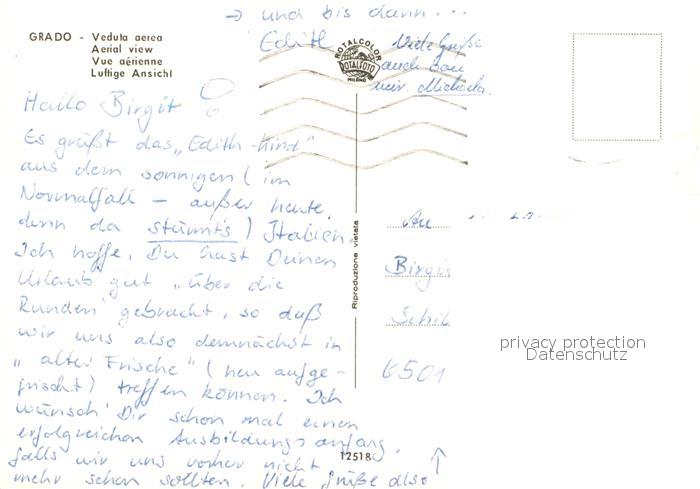 GRADO - Veduta aerea
Aerial view
Vue aérienne
Luftige Ansicht
Hallo Birgit
Es grüßt das „Edith-Kind"
aus dem sonnigen (im
Normalfall – außer heute,
denn da stürmt's) Italien.
Ich hoffe, Du hast Deinen
Urlaub gut „über die
Runden" gebracht, so daß
wir uns also demnächst in
„alter Frische" (neu aufge-
frischt) treffen können. Ich
wünsch' Dir schon mal einen
erfolgreichen Ausbildungsanfang,
falls wir uns vorher nicht
mehr sehen sollten. Viele Grüße also
→ und bis dann...
Edith
Viele Grüße
auch von
mir. Michaela.
ROTALCOLOR
ROTALFOTO
MILANO
Riproduzione vietata
12518
An
Birgit
Schil
6501
privacy protection
Datenschutz